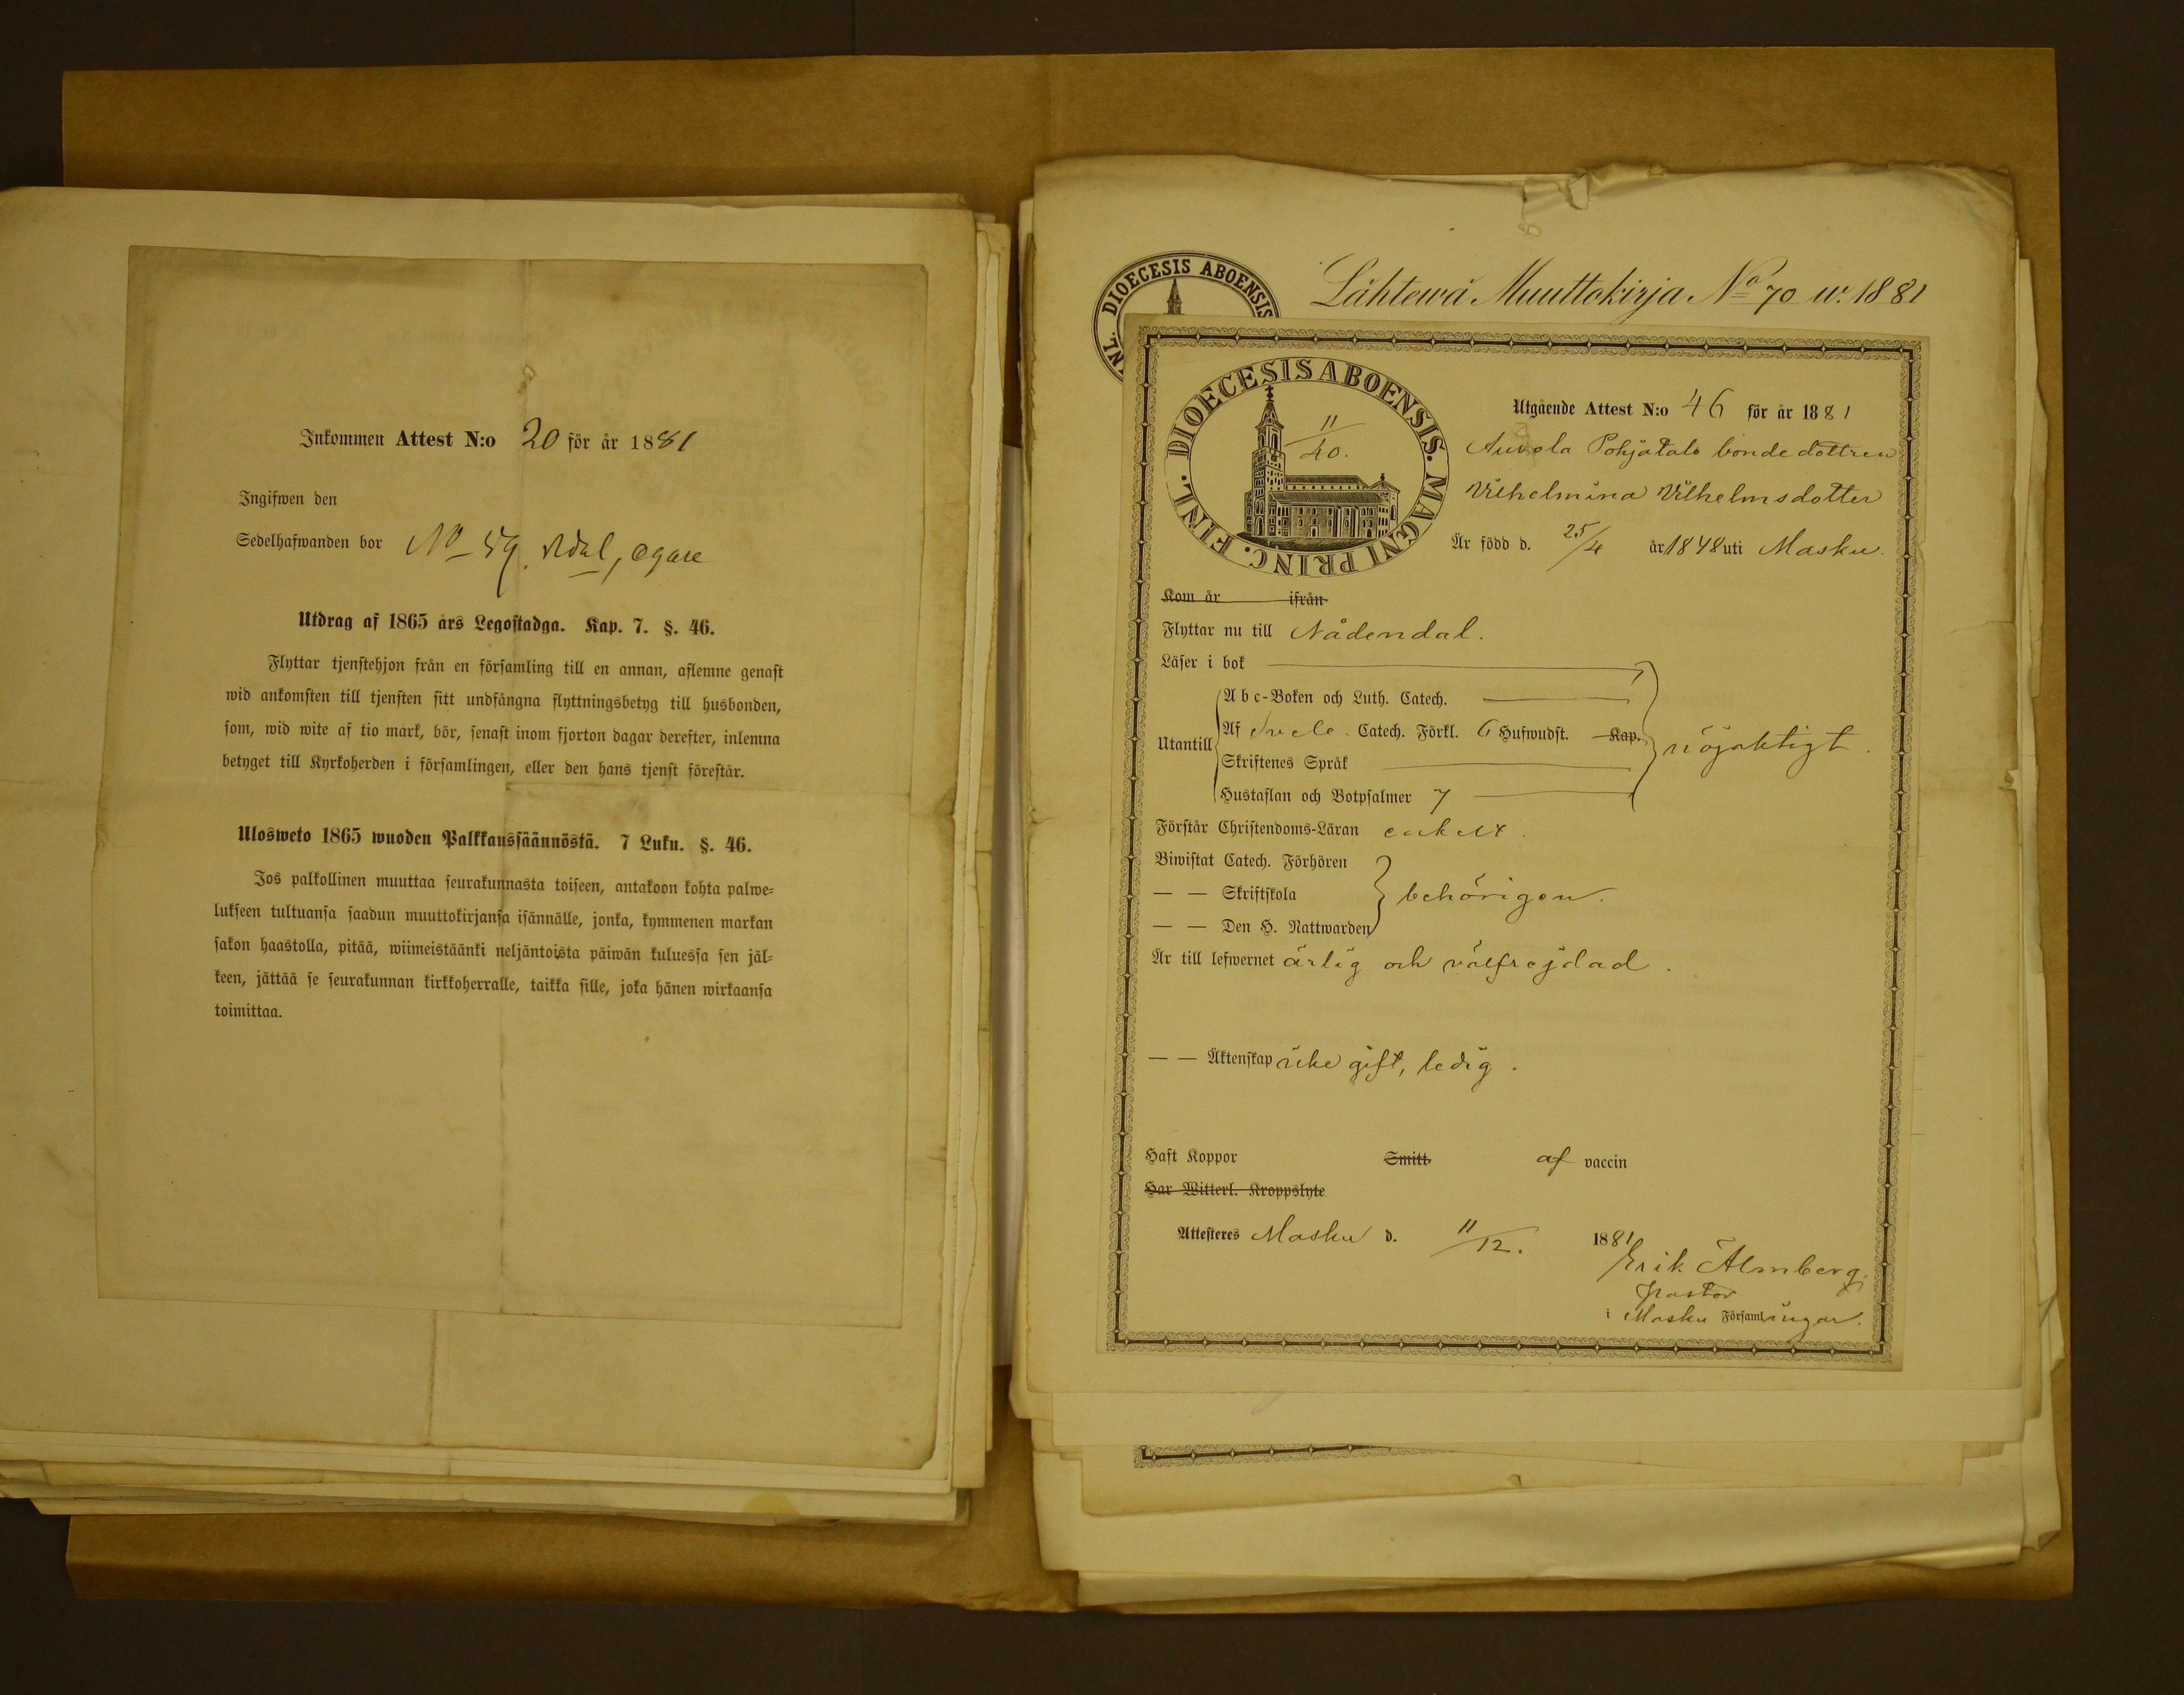 Inkommen Attest N:o 20 för år 1881
Ingifwen den
Sedelhafwanden bor No 59. Ndal, egare
Utdrag af 1865 års Legostadga. Kap. 7. §. 46.
Flyttar tjenstehjon från en församling till en annan, aflemne genast
wid ankomsten till tjensten sitt undfångna flyttningsbetyg till husbonden,
som, wid wite af tio mark, bör, senast inom fjorton dagar derefter, inlemna
betyget till Kyrkoherden i församlingen, eller den hans tjenst förestår.
Ulosweto 1865 wuoden Palkkaussäännöstä. 7 Luku. §. 46.
Jos palkollinen muuttaa seurakunnasta toiseen, antakoon kohta palwe-
lukseen tultuansa saadun muuttokirjansa isännälle, jonka, kymmenen markan
sakon haastolla, pitää, wiimeistäänki neljäntoista päiwän kuluessa sen jäl-
keen, jättää se seurakunnan kirkkoherralle, taikka sille, joka hänen wirkaansa
toimittaa.
Lähtewä Muuttokirja No 70 w. 1881
NL. DIOECESIS ABOENSIS
DIOECESIS ABOENSIS. MAGNI PRINC. FINL.
11/40.
Utgående Attest N:o 46 för år 1881
Auvola Pohjatalo bonde dottren
Vilhelmina Vilhelmsdotter
Är född d. 25/4 år 1848 uti Masku.
Kom år ifrån
Flyttar nu till Nådendal.
Läser i bok
Utantill
A b c-Boken och Luth. Catech.
Af Svele. Catech. Förkl. 6 Hufwudst. Kap.
Skriftenes Språk
Hustaflan och Botpsalmer 7
nöjaktigt.
Förstår Christendoms-Läran enkelt.
Biwistat Catech. Förhören
— — Skriftskola
— — Den H. Nattwarden
behörigen.
Är till lefwernet ärlig och välfrejdad.
— — Äktenskap icke gift, ledig.
Haft Koppor Smitt. af vaccin
Har Witterl. Kroppslyte
Attesteres Masku d. 11/12. 1881
Erik Almberg.
Pastor
i Masku Församlingar.